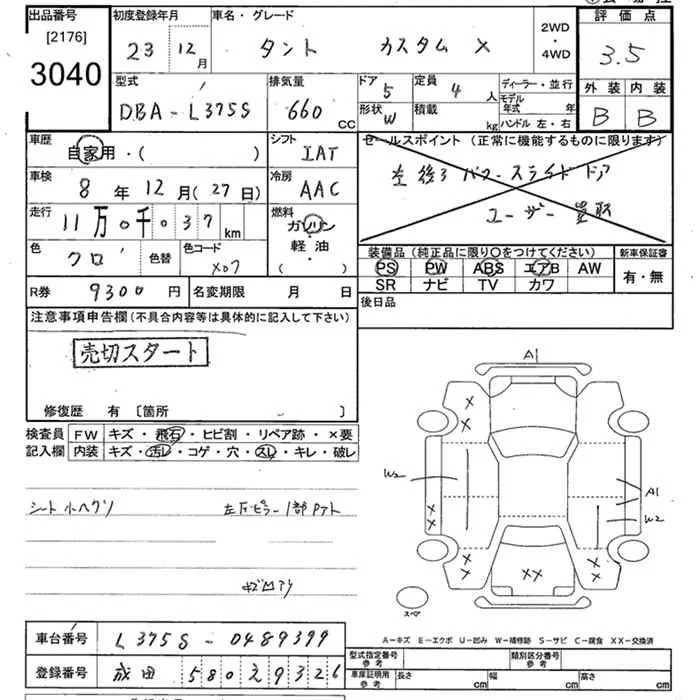 出品番号 初度登録年月 車名・グレード 2WD 評価点
[2176] 23 12月 タント カスタム X ・ 3.5
3040 4WD
型式 排気量 ドア 5 定員 4 人 ディーラー・並行 外装 内装
DBA-L375S 660 CC 形状 W 積載 kg モデル年式 年 B B
ハンドル 左・右
車歴 自家用・( ) シフト IAT セールスポイント (正常に機能するものに限ります)
車検 8年 12月(27日) 冷房 AAC 左後ろパワースライドドア
走行 11万0千037 km 燃料 ガソリン・軽油・( ) ユーザー買取
色 クロ 色替 色コード X07 装備品 (純正品に限り〇をつけてください) 新車保証書
PS PW ABS エアB AW 有・無
SR ナビ TV カワ
R券 9300円 名変期限 月 日 後日品
注意事項申告欄 (不具合内容等は具体的に記入して下さい)
売切スタート
修復歴 有 [箇所 ]
検査員 FW キズ・飛石・ヒビ割・リペア跡・×要
記入欄 内装 キズ・汚レ・コゲ・穴・スレ・キレ・破レ
A1
X
X
W2
A1
W2
X
X
X
X
XX
X
X
スペア
シート小ヘタリ 左Bピラー1部Pアト
A-キズ E-エクボ U-凹み W-補修跡 S-サビ C-腐食 XX-交換済
車台番号 L375S-0489399
登録番号 成田 580 2 9326
型式指定番号 参考 類別区分番号 参考
車庫証明用 参考 長さ cm 幅 cm 高さ cm